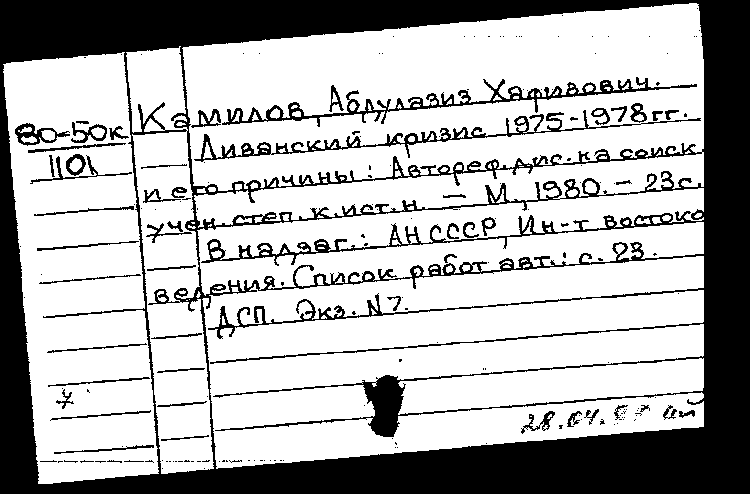 80-50к
1101
Камилов, Абдулазиз Хафизович.
Ливанский кризис 1975-1978 гг.
и его причины: Автореф. дис. на соиск.
учен. степ. к. ист. н. — М., 1980. – 23 с.
В надзаг.: АН СССР, Ин-т востоко
ведения. Список работ авт.: с. 23.
ДСП. Экз. N 7.
28.04.